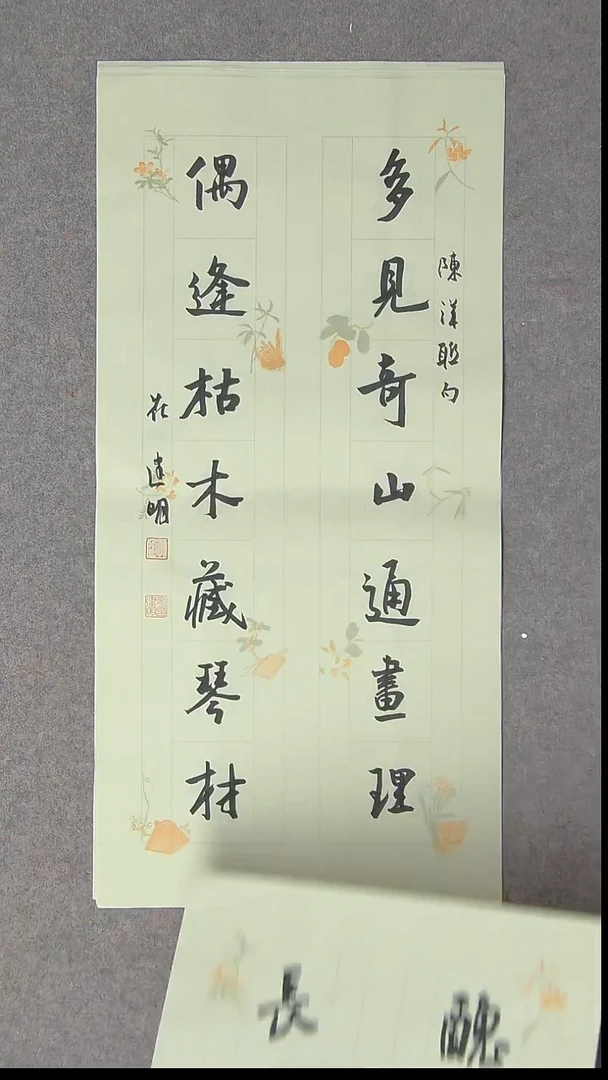 陳洋聯句
多見奇山通畫理
偶逢枯木藏琴材
莊建明
長
醜